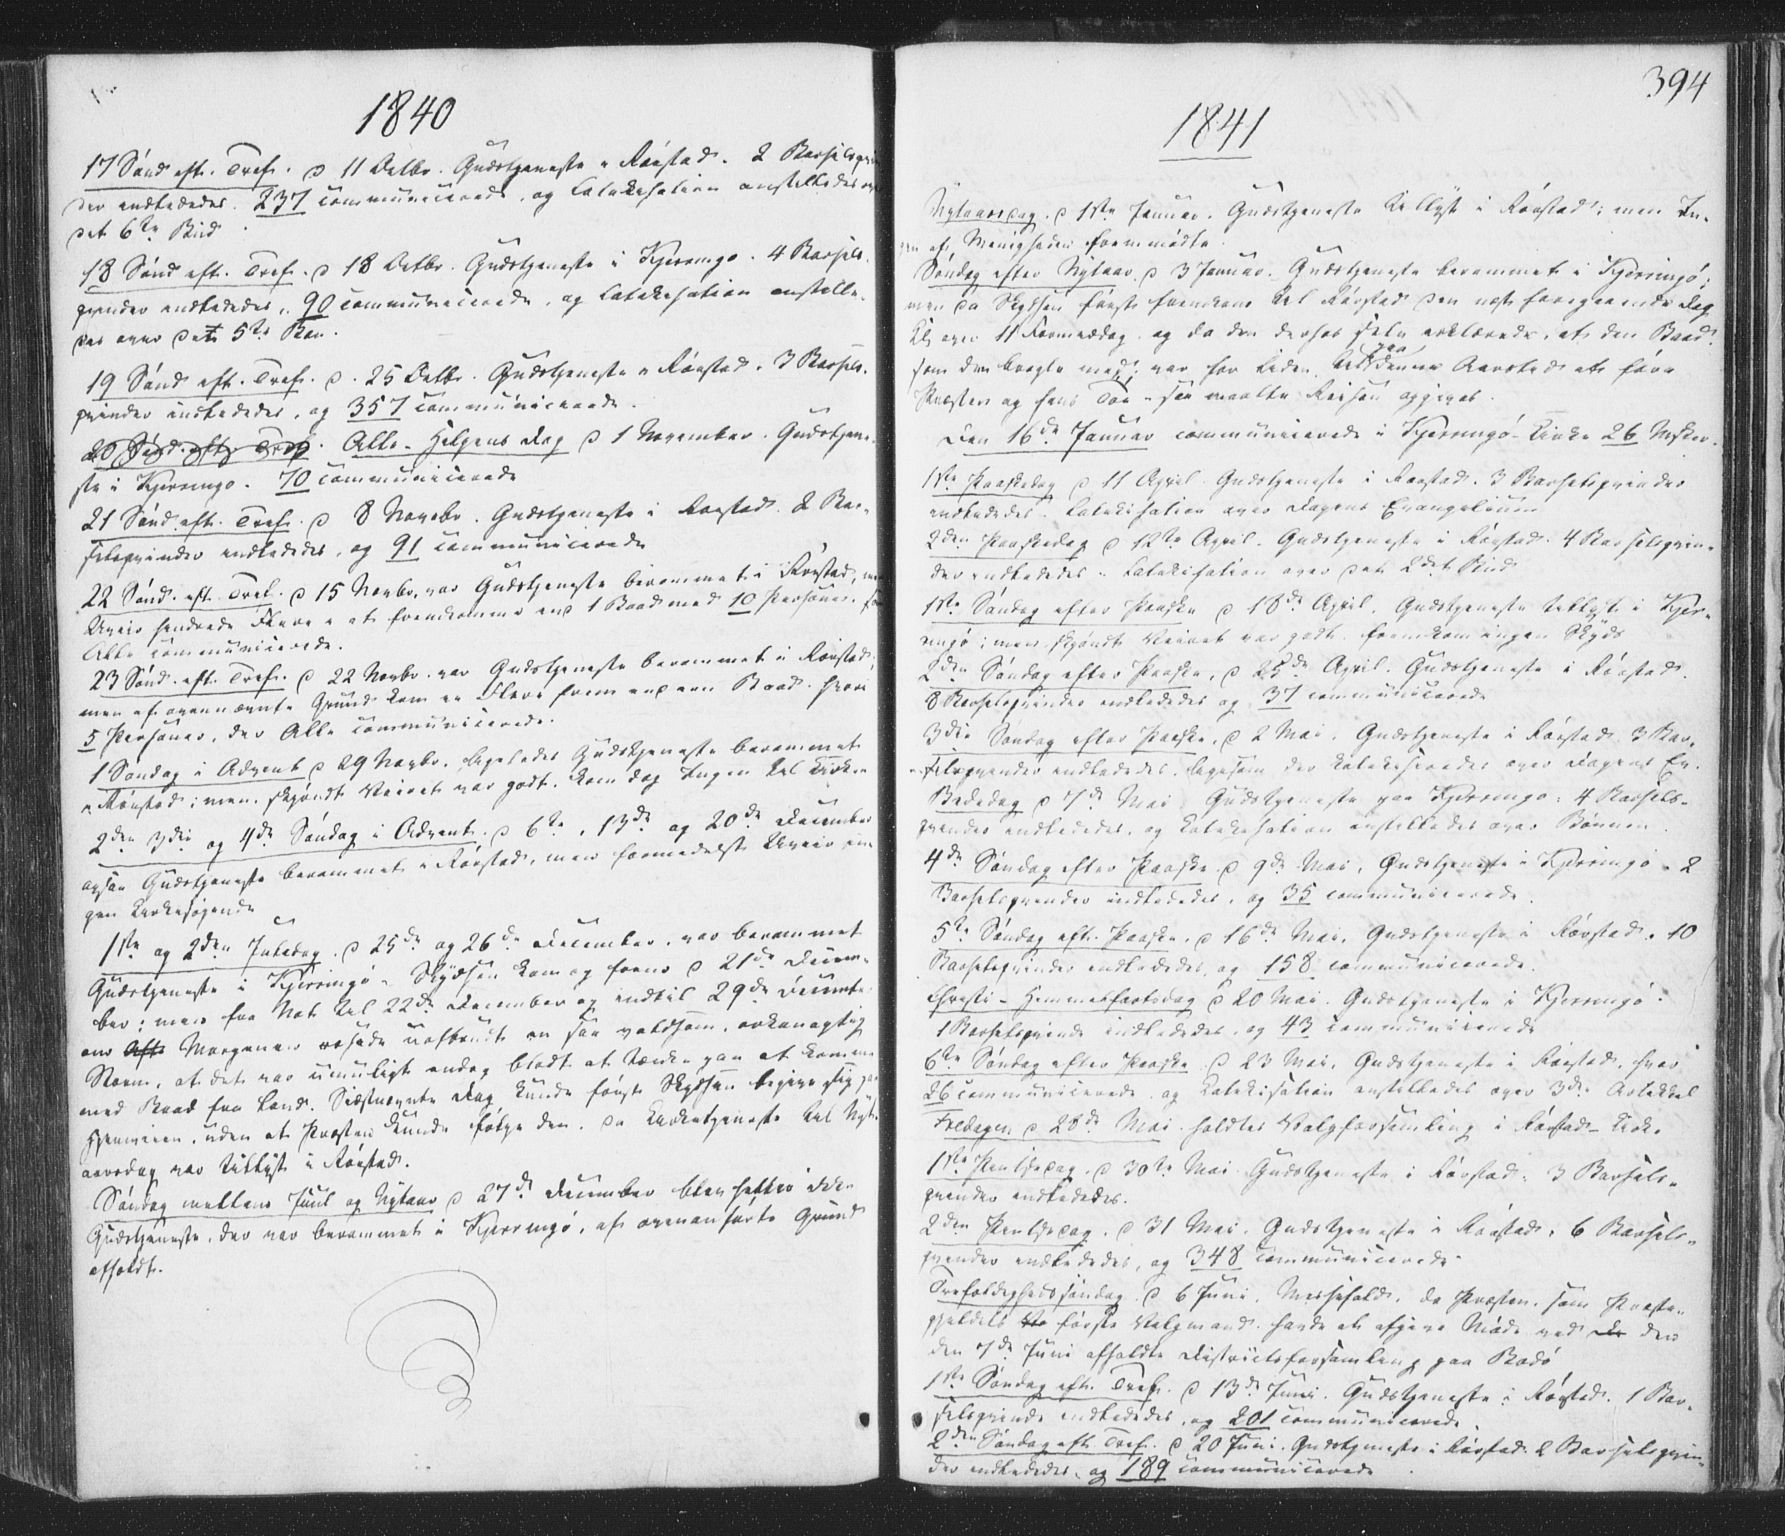 1840
17 Sønd. eft. Tref. d 11 Octbr. Gudstjeneste i Rørstad. 2 Barselqvin
der indledede. 237 communicerede, og Catekesation anstilledes over
det 6te Bud.
18 Sønd eft. Tref. d 18 Octbr. Gudstjeneste i Kjerringø. 4 Barsel-
qvinder indlededes, 90 communicerede, og Catekesation anstille-
des over det 5te Bøn.
19 Sønd eft. Tref. d. 25 Octbr. Gudstjeneste i Rørstad. 3 Barsel-
qvinder indlededes, og 357 communicerede.
20 Sønd. eft. Tref. Alle-Helgens Dag d 1 November. Gudstjene-
ste i Kjerringø. 70 communicerede
21 Sønd. eft. Tref. d 8 Novebr. Gudstjeneste i Rørstad. 2 Bar-
selsqvinder indlededes, og 91 communicerede
22 Sønd. eft. Tref. d 15 Novbr. var Gudstjeneste berammet i Rørstad, men
Uveir hindrede Flere i at fremkomme end 1 Baad med 10 Personer, som
Alle communicerede.
23 Sønd. eft. Tref. d 22 Novbr. var Gudstjeneste berammet i Rørstad;
men af ovennævnte Grund kom ei Flere frem end een Baad, hvori
5 Personer, der Alle communicerede.
1 Søndag i Advent d 29 Novbr. ligeledes Gudstjeneste berammet
i Rørstad; men, skjøndt Veiret var godt, kom dog Ingen til Kirke
2den 3die og 4de Søndag i Advent d 6te, 13de og 20de December
ogsaa Gudstjeneste berammet i Rørstad, men formedelst Uveir in-
gen Kirkesøgende
1ste og 2den Juledag d 25de og 26de December, var berammet
Gudstjeneste i Kjerringø. Skydsen kom og frem d 21de Decem-
ber; men fra Nat til 22de December og indtil 29de Decembr.
om Morgenen rasede uafbrudt en saa voldsom, orkanagtig
Storm, at det var umuligt endog blodt at tænke paa at komme
med Baad fra Land. Sidstnævnte Dag kunde først Skydsen begive sig paa
Hjemveien, uden at Præsten kunde følge den, da Kirketjeneste til Nyt-
aarsdag var tillyst i Rørstad.
Søndag mellem Juul og Nytaar d 27de December blev heller ikke
Gudstjeneste, der var berammet i Kjerringø, af ovenanførte Grund
afholdt.
394
1841
Nytaarsdag d 1ste Januar. Gudstjeneste tillyst i Rørstad; men In-
gen af Menigheden fremmødte.
Søndag efter Nytaar d 3 Januar. Gudstjeneste berammet i Kjerringø;
men da Skydsen først fremkom til Rørstad den næst foregaaende Dag
Kl. over 11 Formiddag, og da den derhos selv erklærede, at den Baad,
som den bragte med, var for liden til paa denne Aarstid at føre
Præsten og hans Tøi - saa maatte Reisen opgives.
Den 16de Januar communicerede i Kjerringø-Kirke 26 Msker.
1ste Paaskedag d 11 April Gudstjeneste i Rørstad. 3 Barselsqvinder
indlededes. Catekisation over Dagens Evangelium
2den Paaskedag d 12te April. Gudstjeneste i Rørstad. 4 Barselsqvin-
der indlededes. Catekisation over det 2det Bud
1ste Søndag efter Paaske d 18de April. Gudstjeneste tillyst i Kjer-
ringø; men skjøndt Veiret var godt, fremkom ingen Skyds
2den Søndag efter Paaske, d 25de April. Gudstjeneste i Rørstad.
8 Barselsqvinder indlededes og 37 communicerede
3die Søndag efter Paaske, d 2 Mai. Gudstjeneste i Rørstad. 3 Bar-
selsqvinder indlededes, ligesom der Catekiseredes over Dagens Ev.
Bededag d 7de Mai. Gudstjeneste paa Kjerringø. 4 Barsels-
qvinder indlededes, og Catekesation anstilledes over Bønnen.
4de Søndag efter Paaske d 9de Mai. Gudstjeneste i Kjerringø. 2
Barselsqvinder indlededes, og 35 communicerede.
5te Søndag eft. Paaske, d 16de Mai. Gudstjeneste i Rørstad. 10
Barselsqvinder indlededes, og 158 communicerede.
Christi-Himmelfartsdag d 20 Mai. Gudstjeneste i Kjerringø.
1 Barselsqvinde indlededes, og 43 communicerede
6te Søndag efter Paaske d 23 Mai, Gudstjeneste i Rørstad, hvor
26 communicerede, og Catekisation anstilledes over 3die Artikkel
Fredagen d 28de Mai holdtes Valgforsamling i Rørstad-Kirke
1ste Pintsedag d 30te Mai Gudstjeneste i Rørstad. 3 Barsels-
qvinder indlededes.
2den Pintsedag, d 31 Mai. Gudstjeneste i Rørstad. 6 Barsels-
qvinder indlededes, og 348 communicerede
Trefoldighedssøndag d 6 Juni, Messefald, da Præsten, som Præste-
gjeldets første Valgmand, havde at afgive Møde ved den
den 7de Juni afholdte Districtsforsamling paa Bodø
1ste Søndag eft. Tref. d 13de Juni. Gudstjeneste i Rørstad. 1 Bar-
selsqvinde indlededes, og 201 communicerede.
2den Søndag eft Tref. d 20 Juni. Gudstjeneste i Rørstad. 2 Barselsqvin-
der indlededes, og 189 communicerede